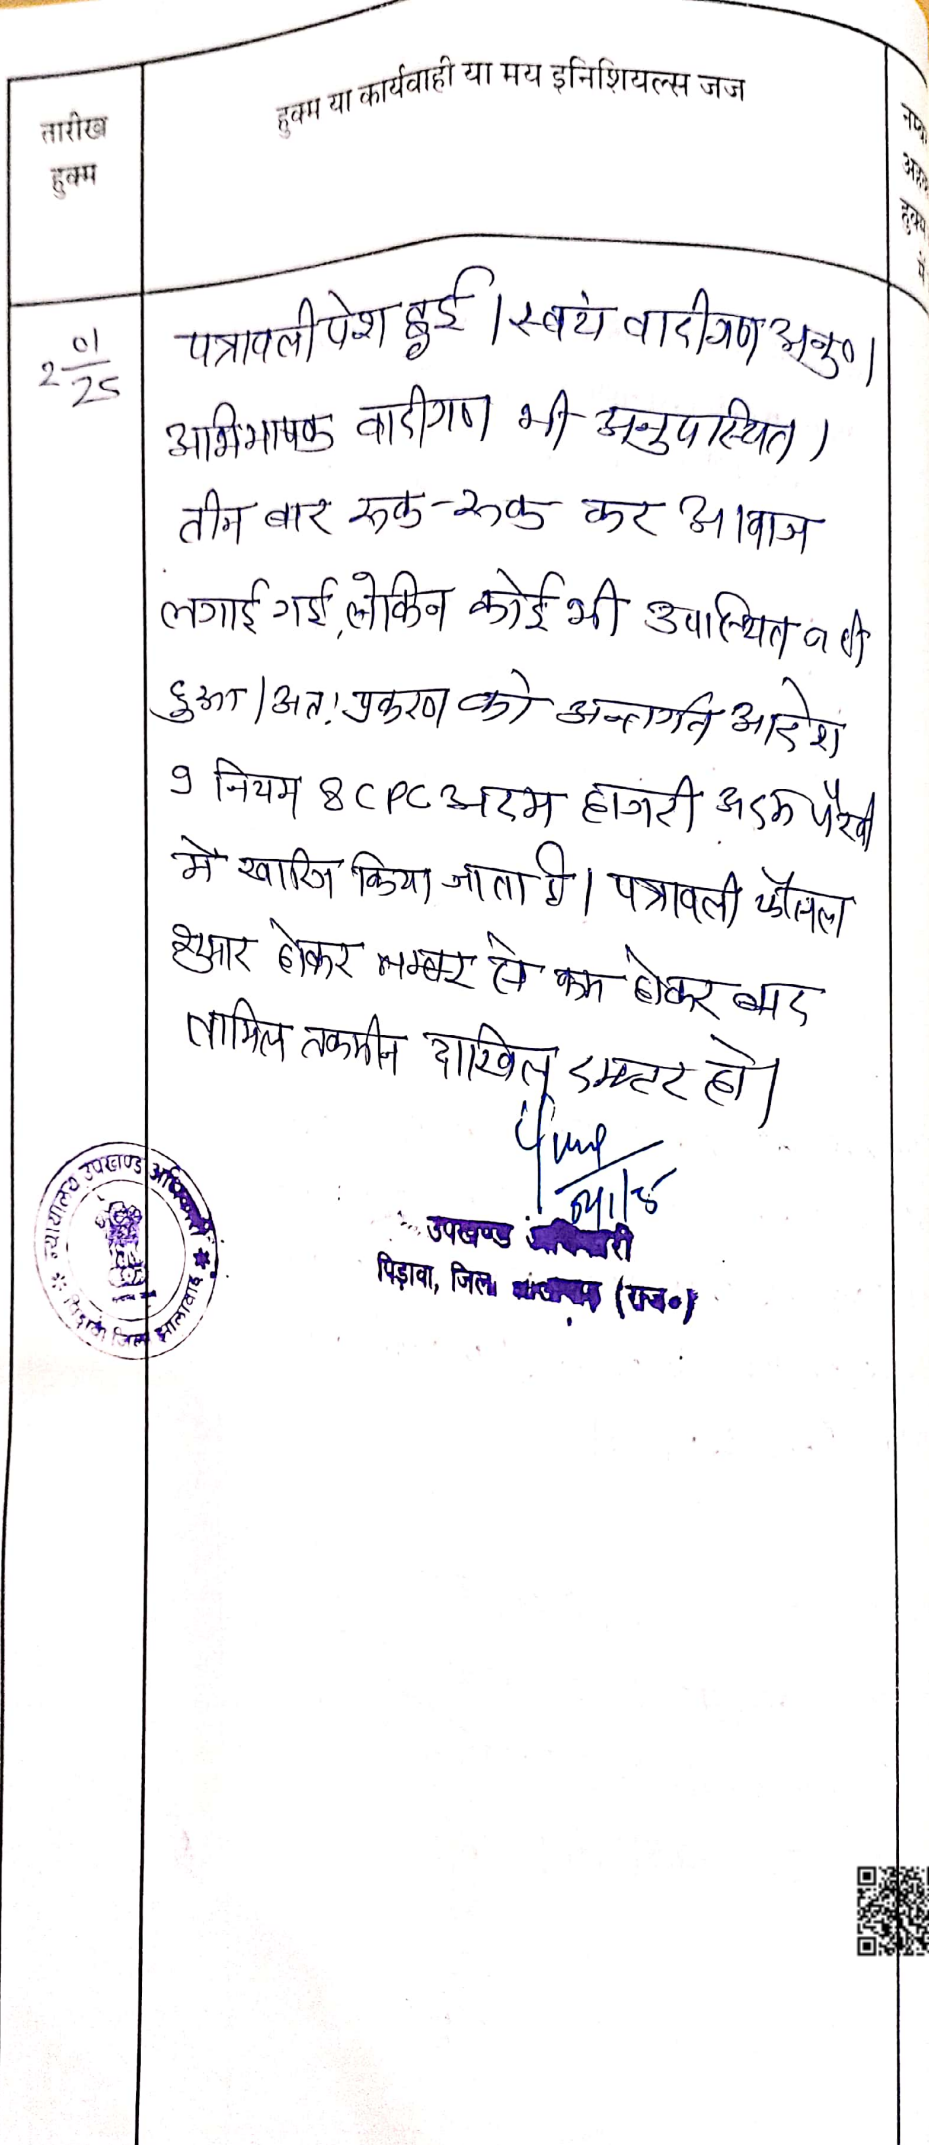 हुक्म या कार्यवाही या मय इनिशियल्स जज
तारीख
हुक्म
नम्ब
अहव
हुक्म
में
2 01/25
पत्रावली पेश हुई। स्वयं वादीगण अनु०।
अभिभाषक वादीगण भी अनुपस्थित।
तीन बार रूक-रूक कर आवाज
लगाई गई, लेकिन कोई भी उपस्थित नही
हुआ। अतः प्रकरण को अन्तर्गत आदेश
9 नियम 8 CPC अदम हाजरी अदम पैरवी
में खारिज किया जाता है। पत्रावली फैसल
शुमार होकर नम्बर से कम होकर बाद
तामिल तकमील दाखिल दफ्तर हो।
न्यायालय उपखण्ड अधिकारी
पिड़ावा जिला झालावाड़
उपखण्ड अधिकारी
पिड़ावा, जिला (राज०)